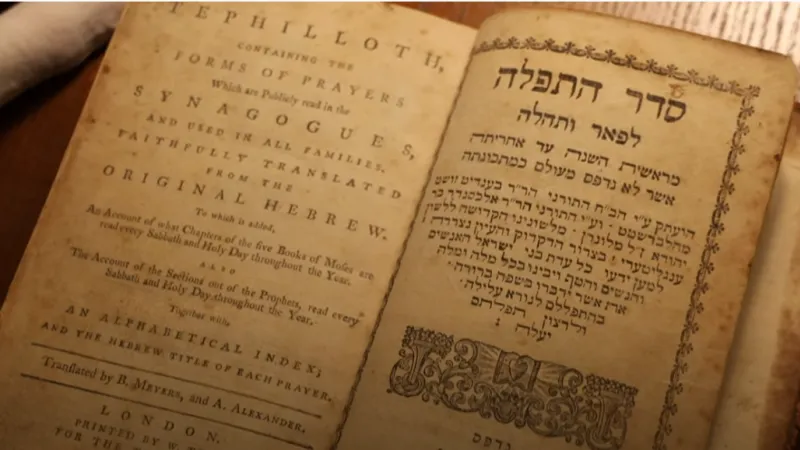 TEPHILLOTH,
CONTAINING THE
FORMS OF PRAYERS
Which are Publicly read in the
SYNAGOGUES,
AND USED IN ALL FAMILIES.
FAITHFULLY TRANSLATED
FROM THE
ORIGINAL HEBREW.
To which is added,
An Account of what Chapters of the five Books of Moses are
read every Sabbath and Holy Day throughout the Year.
ALSO
The Account of the Sections out of the Prophets, read every
Sabbath and Holy Day throughout the Year.
Together with,
AN ALPHABETICAL INDEX;
AND THE HEBREW TITLE OF EACH PRAYER.
Translated by B. MEYERS, and A. ALEXANDER.
LONDON.
PRINTED BY W.
FOR THE
סדר התפלה
לפאר ותהלה
מראשית השנה עד אחריתה
אשר לא נדפס מעולם כמתכונתה
הועתק ע״י הב״ח התורני הר״ר בענדיט
מהלברשטט · וע״י התורני הר״ר אלכסנדר בר
יהודא ז״ל מלונדן · מלשונינו הקדושה ללשון
ענגליטערי : בצרוף הדקדוק והעיון
למען ידעו כל עדת בני ישראל האנשים
והנשים והטף ויבינו בכל מלה ומלה
את אשר ידברו בשפה ברורה
בהתפללם לנורא עלילה ·
ולרצון תפלתם
יעלה :
נדפס